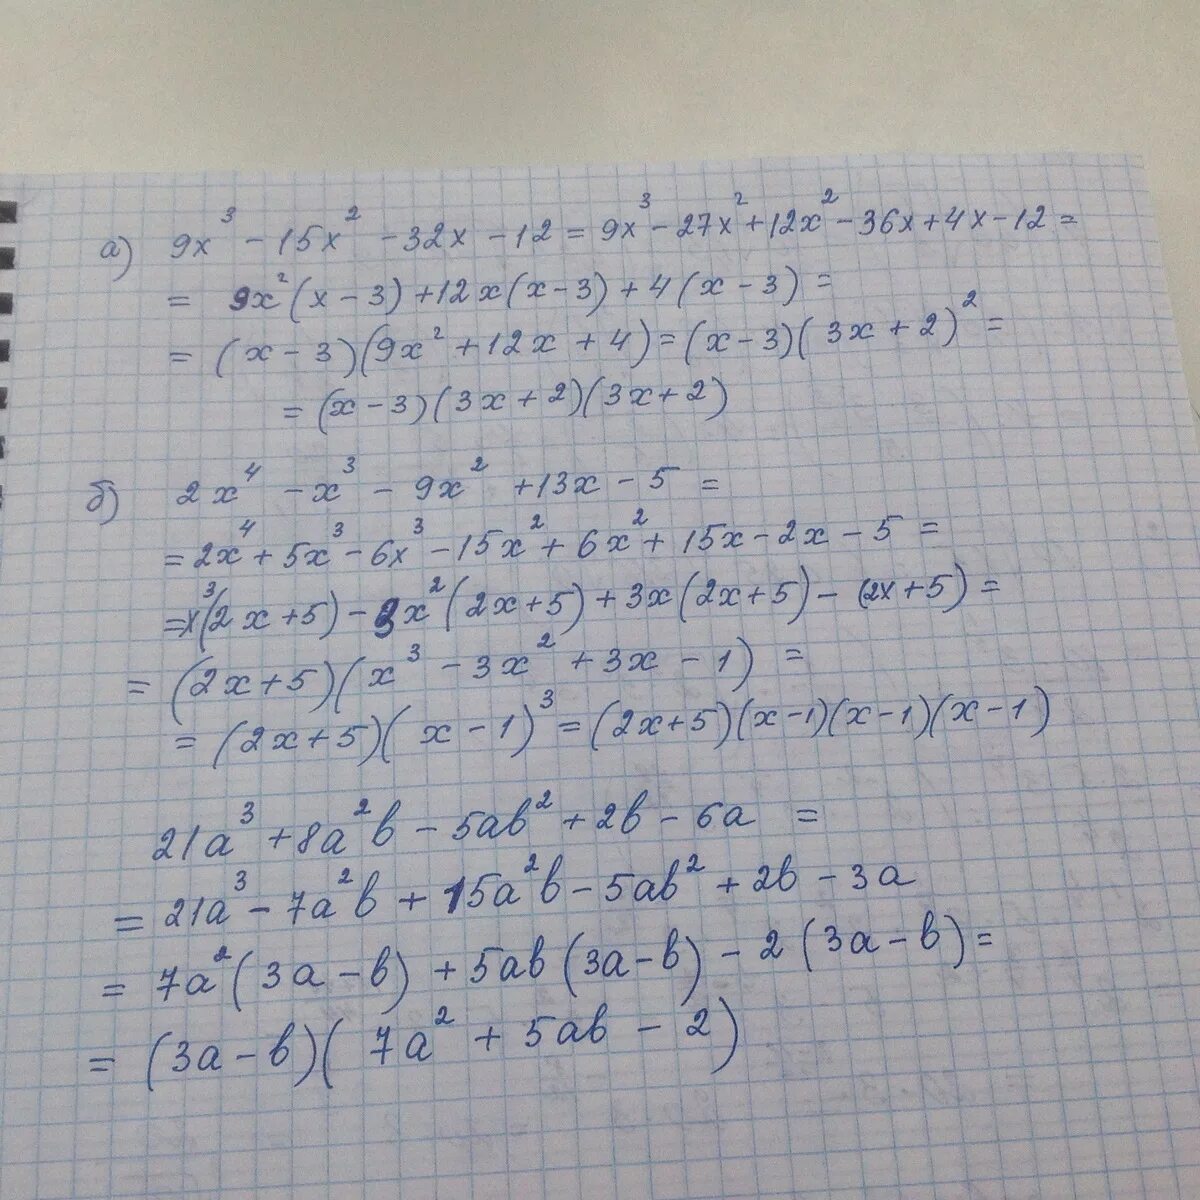 а) 9x³ - 15x² - 32x - 12 = 9x³ - 27x² + 12x² - 36x + 4x - 12 =
= 9x²(x - 3) + 12x(x - 3) + 4(x - 3) =
= (x - 3)(9x² + 12x + 4) = (x - 3)(3x + 2)² =
= (x - 3)(3x + 2)(3x + 2)
б) 2x⁴ - x³ - 9x² + 13x - 5 =
= 2x⁴ + 5x³ - 6x³ - 15x² + 6x² + 15x - 2x - 5 =
= x³(2x + 5) - 3x²(2x + 5) + 3x(2x + 5) - (2x + 5) =
= (2x + 5)(x³ - 3x² + 3x - 1) =
= (2x + 5)(x - 1)³ = (2x + 5)(x - 1)(x - 1)(x - 1)
21a³ + 8a²b - 5ab² + 2b - 6a =
= 21a³ - 7a²b + 15a²b - 5ab² + 2b - 3a
= 7a²(3a - b) + 5ab(3a - b) - 2(3a - b) =
= (3a - b)(7a² + 5ab - 2)